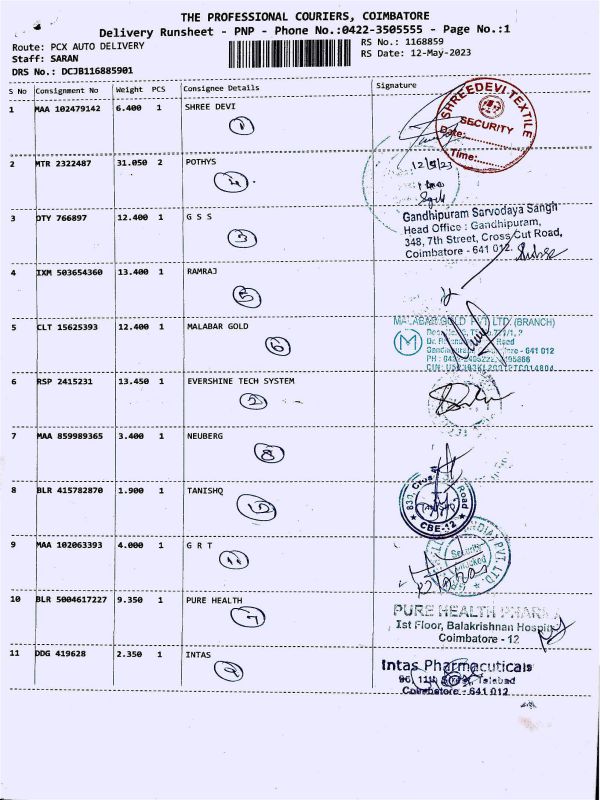 THE PROFESSIONAL COURIERS, COIMBATORE
Delivery Runsheet - PNP - Phone No.:0422-3505555 - Page No.:1
Route: PCX AUTO DELIVERY
RS No.: 1168859
Staff: SARAN
RS Date: 12-May-2023
DRS No.: DCJB116885901
S No Consignment No Weight PCS Consignee Details Signature
1 MAA 102479142 6.400 1 SHREE DEVI
1
SHREEDEVI TEXTILE
SECURITY
Date:
Time:
2 MTR 2322487 31.050 2 POTHYS
12/5/23
3 DTY 766897 12.400 1 G S S
3
Gandhipuram Sarvodaya Sangh
Head Office : Gandhipuram,
348, 7th Street, Cross Cut Road,
Coimbatore - 641 012.
4 IXM 503654360 13.400 1 RAMRAJ
5 CLT 15625393 12.400 1 MALABAR GOLD
6
MALABAR GOLD PVT LTD. (BRANCH)
M
641 012
6 RSP 2415231 13.450 1 EVERSHINE TECH SYSTEM
7 MAA 859989365 3.400 1 NEUBERG
8
8 BLR 415782870 1.900 1 TANISHQ
Road
CBE-12
9 MAA 102063393 4.000 1 G R T
PVT. LTD.
10 BLR 5004617227 9.350 1 PURE HEALTH
7
PURE HEALTH
Ist Floor, Balakrishnan
Coimbatore - 12
11 DDG 419628 2.350 1 INTAS
Intas Pharmacuticals
Coimbatore - 641 012